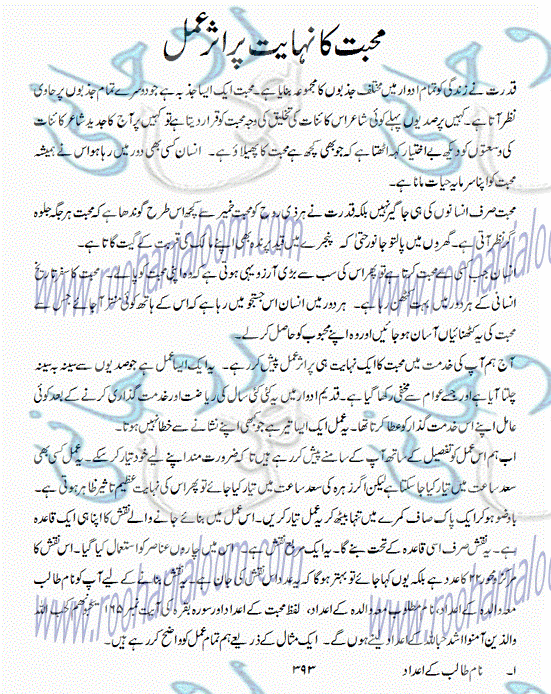 محبت کا نہایت پر اثر عمل
قدرت نے زندگی کو تمام ادوار میں مختلف جذبوں کا مجموعہ بنایا ہے۔ محبت ایک ایسا جذبہ ہے جو دوسرے تمام جذبوں پر حاوی
نظر آتا ہے۔ کہیں پر صدیوں پہلے کوئی شاعر اس کائنات کی تخلیق کی وجہ محبت کو قرار دیتا ہے تو کہیں پر آج کا جدید شاعر کائنات
کی وسعتوں کو دیکھ بے اختیار کہہ اٹھتا ہے کہ جو بھی کچھ ہے محبت کا پھیلاؤ ہے۔ انسان کسی بھی دور میں رہا ہو اس نے ہمیشہ
محبت کو اپنا سرمایہ حیات مانا ہے۔
محبت صرف انسانوں کی ہی جاگیر نہیں بلکہ قدرت نے ہر ذی روح کو محبت خمیر سے کچھ اس طرح گوندھا ہے کہ محبت ہر جگہ جلوہ
گر نظر آتی ہے۔ گھروں میں پالتو جانور حتیٰ کہ پنجرے میں قید پرندہ بھی اپنے مالک کی قربت کے گیت گاتا ہے۔
انسان جب کسی سے محبت کرتا ہے تو پھر اس کی سب سے بڑی آرزو یہی ہوتی ہے کہ وہ اپنی محبت کو پا لے۔ محبت کا سفر تاریخ
انسانی کے ہر دور میں بہت کٹھن رہا ہے۔ ہر دور میں انسان اس جستجو میں رہا ہے کہ اس کے ہاتھ کوئی منتر آ جائے جس سے
محبت کی یہ کٹھنائیاں آسان ہو جائیں اور وہ اپنے محبوب کو حاصل کر لے۔
آج ہم آپ کی خدمت میں محبت کا ایک نہایت ہی پر اثر عمل پیش کر رہے۔ یہ ایک ایسا عمل ہے جو صدیوں سے سینہ بہ سینہ
چلتا آیا ہے اور جسے عوام سے مخفی رکھا گیا ہے۔ قدیم ادوار میں یہ کئی کئی سال کی ریاضت اور خدمت گذاری کرنے کے بعد کوئی
عامل اپنے اس خدمت گذار کو عطا کرتا تھا۔ یہ عمل ایک ایسا تیر ہے جو کبھی اپنے نشانے سے خطا نہیں ہوتا۔
اب ہم اس عمل کو تفصیل کے ساتھ آپ کے سامنے پیش کر رہے ہیں تا کہ ضرورت مند اپنے لیے خود تیار کر سکے۔ یہ عمل کسی بھی
سعد ساعت میں تیار کیا جا سکتا ہے لیکن اگر زہرہ کی سعد ساعت میں تیار کیا جائے تو پھر اس کی نہایت عظیم تاثیر ظاہر ہوتی ہے۔
با وضو ہو کر ایک پاک صاف کمرے میں تنہا بیٹھ کر یہ عمل تیار کریں۔ اس عمل میں بنائے جانے والے نقش کا اپنا ہی ایک قاعدہ
ہے۔ یہ نقش صرف اسی قاعدہ کے تحت بنے گا۔ یہ ایک مربع نقش ہے۔ اس میں چاروں عناصر کو استعمال کیا گیا۔ اس نقش کا
مرکز و محور ۲۲ کا عدد ہے بلکہ یوں کہا جائے تو بہتر ہو گا کہ یہ عدد اس نقش کی جان ہے۔ یہ نقش بنانے کے لیے آپ کو نام طالب
معہ والدہ کے اعداد، نام مطلوب معہ والدہ کے اعداد، لفظ محبت کے اعداد اور سورہ بقرہ کی آیت نمبر ۱۶۵ یحبونھم کحب اللہ
والذین آمنوا اشد حبا للہ کے اعداد لینے ہوں گے۔ ایک مثال کے ذریعے ہم تمام عمل کو واضح کر رہے ہیں۔
۱۔ نام طالب کے اعداد ۳۹۳